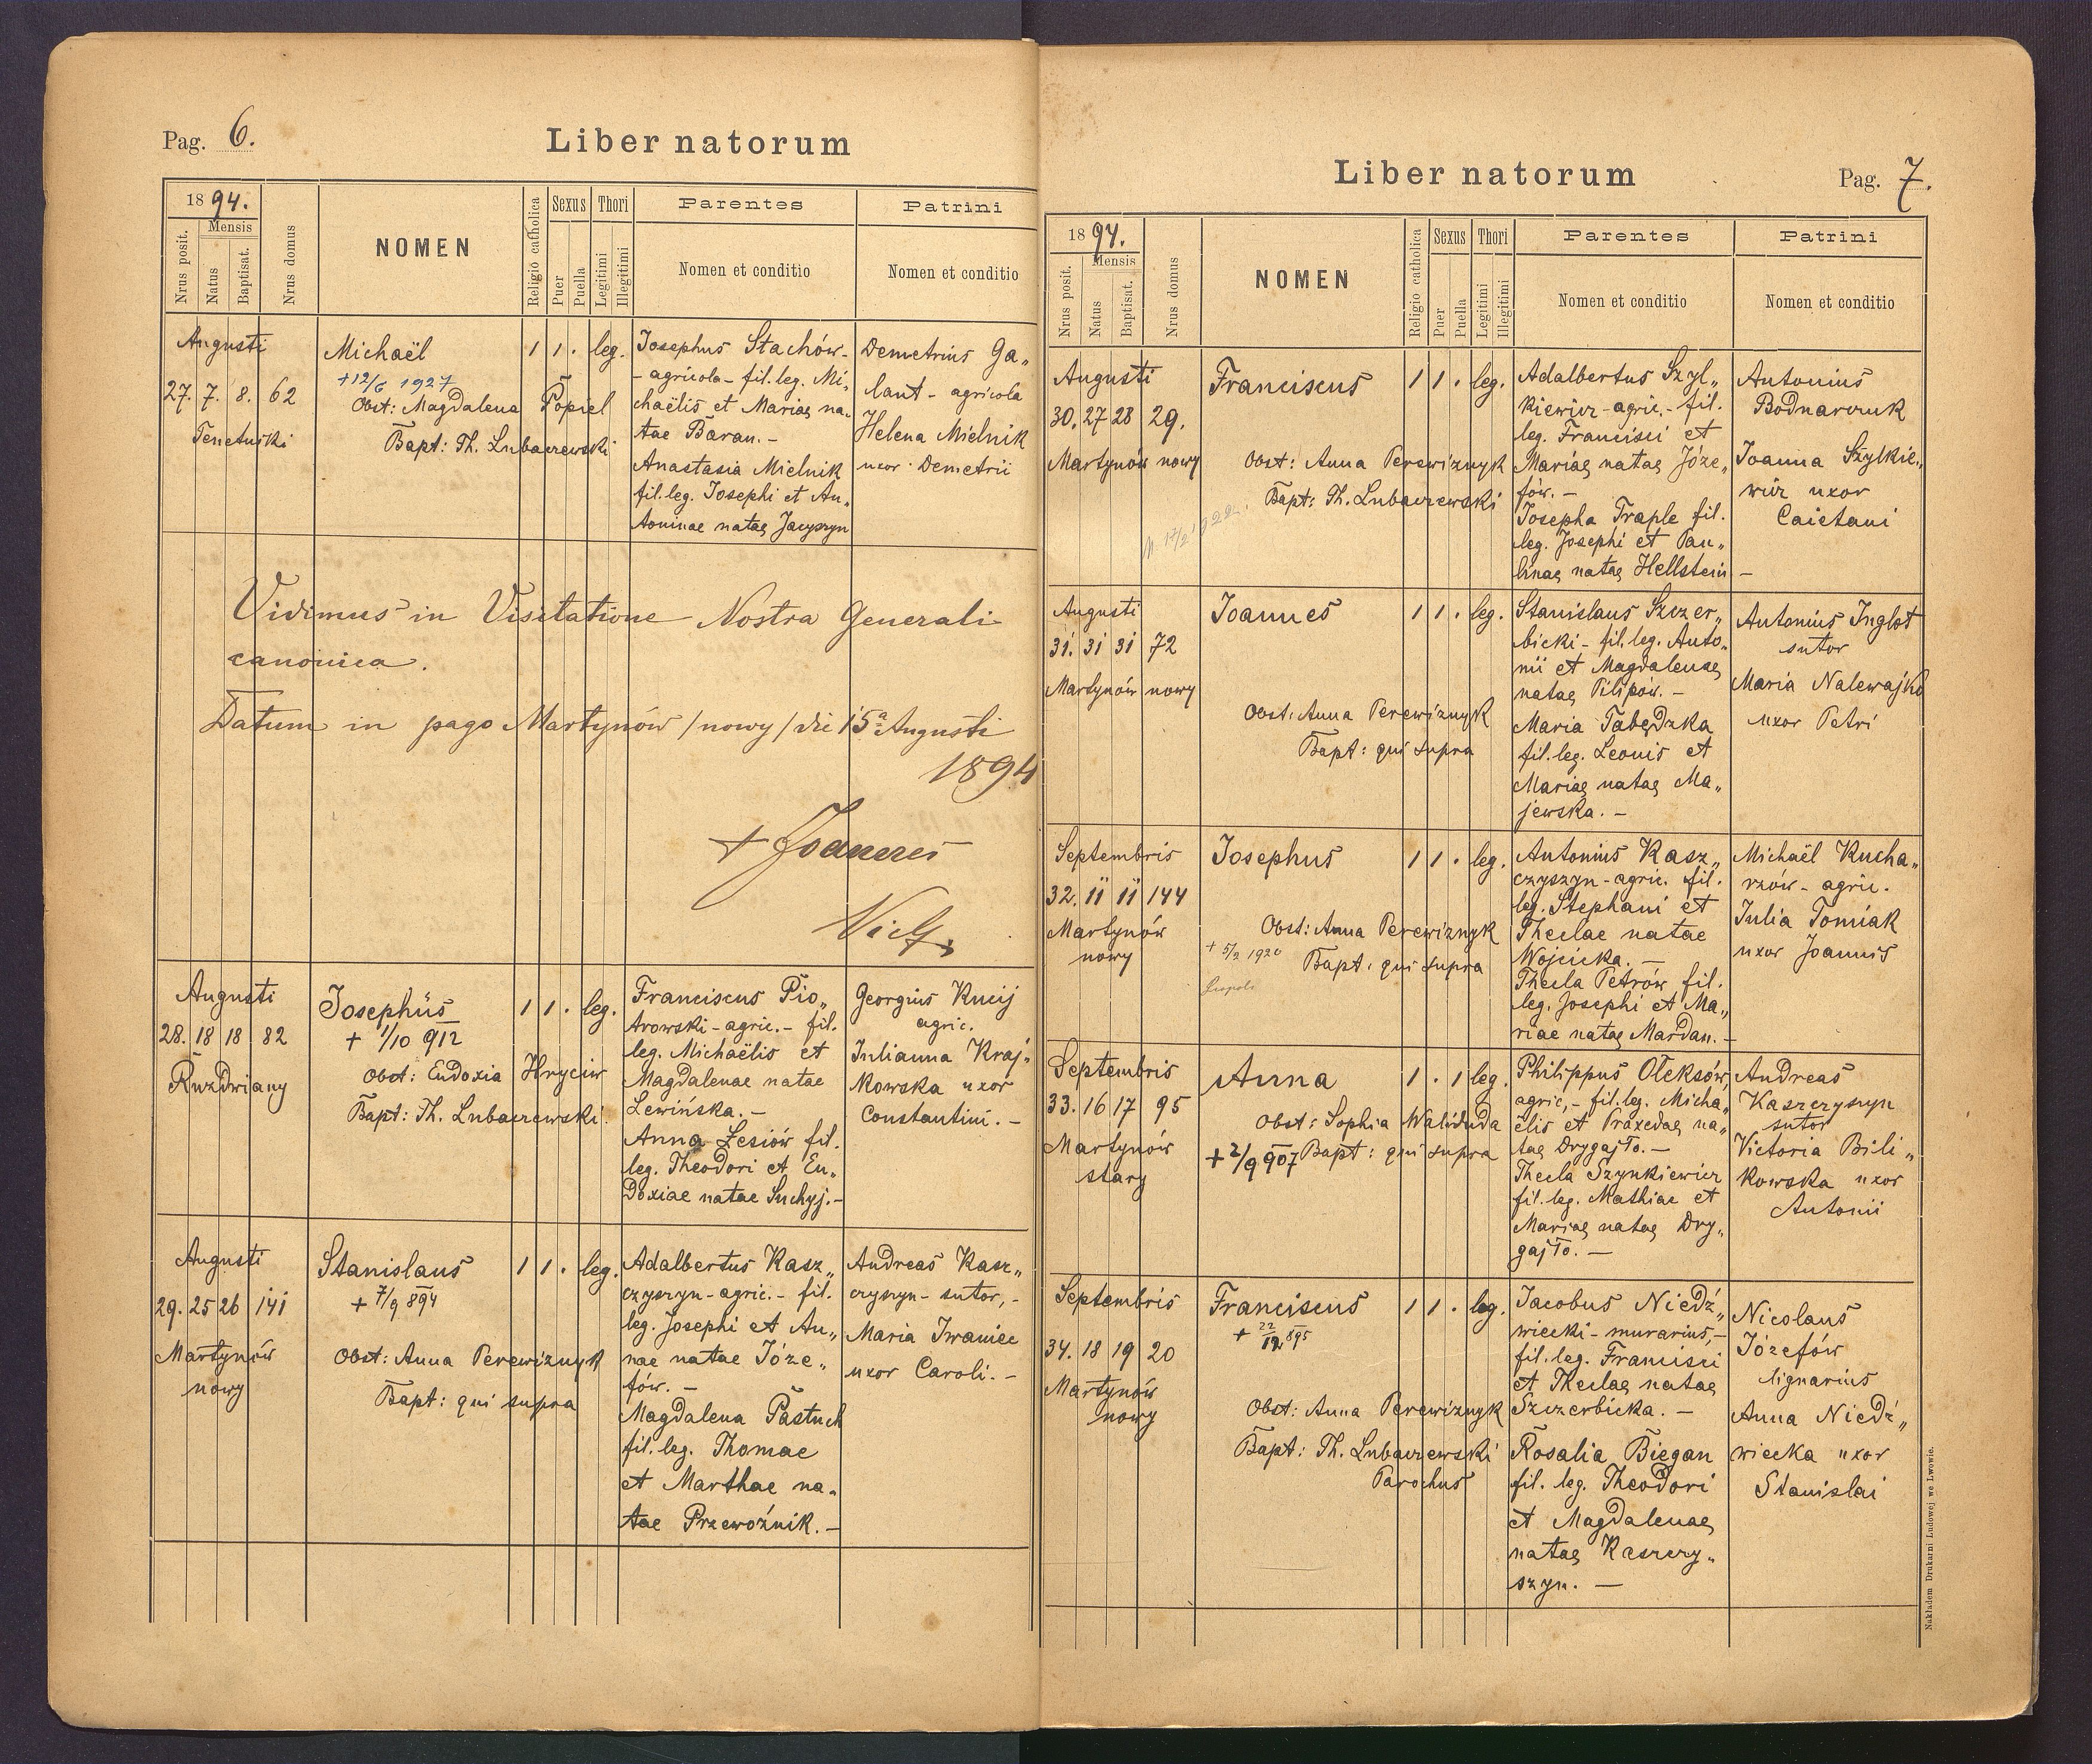 Pag. 6.
Liber natorum
1894.
Mensis
Nrus posit.
Natus
Baptisat.
Nrus domus
NOMEN
Religio catholica
Sexus
Puer
Puella
Thori
Legitimi
Illegitimi
Parentes
Nomen et conditio
Patrini
Nomen et conditio
Augusti
27. 7. 8. 62
Tenetniki
Michaël
+12/6 1927
Obst: Magdalena Popiel
Bapt: Th. Lubaczewski
1 1 . leg.
Josephus Stachów-
- agricola - fil. leg. Mi„
chaëlis et Mariae na„
tae Baran. -
Anastasia Mielnik
fil. leg. Josephi et An„
toninae natae Jacyszyn
Demetrius Ga„
lant - agricola
Helena Mielnik
uxor Demetrii
Vidimus in Visitatione Nostra Generali
canonica.
Datum in pago Martynów /nowy/ die 15ª Augusti
1894
+ Joannes
Augusti
28. 18 18 82
Ruzdwiany
Josephus
+ 1/10 912
Obst: Eudoxia Hryciw
Bapt: Th. Lubaczewski
1 1 . leg.
Franciscus Pio„
trowski - agric. - fil.
leg. Michaëlis et
Magdalenae natae
Lewińska. -
Anna Lesiów fil.
leg. Theodori et Eu„
doxiae natae Suchyj. -
Georgius Kucij
agric.
Julianna Kraj„
kowska uxor
Constantini. -
Augusti
29. 25 26 141
Martynów
nowy
Stanislaus
+ 7/9 894
Obst: Anna Perewiznyk
Bapt: qui supra
1 1 . leg.
Adalbertus Kasz„
czyszyn - agric. - fil.
leg. Josephi et An„
nae natae Józe„
fów. -
Magdalena Pastuch
fil. leg. Thomae
et Marthae na„
tae Przewoźnik. -
Andreas Kasz„
czyszyn - sutor, -
Maria Iwaniec
uxor Caroli. -
Liber natorum
Pag. 7.
1894.
Mensis
Nrus posit.
Natus
Baptisat.
Nrus domus
NOMEN
Religio catholica
Sexus
Puer
Puella
Thori
Legitimi
Illegitimi
Parentes
Nomen et conditio
Patrini
Nomen et conditio
Augusti
30. 27 28 29.
Martynów nowy
Franciscus
Obst: Anna Perewiznyk
Bapt: Th. Lubaczewski
17/2 1922.
1 1 . leg.
Adalbertus Szyl„
kiewicz - agric. - fil.
leg. Francisci et
Mariae natae Józe„
fów. -
Josepha Traple fil.
leg. Josephi et Pau„
linae natae Hellstein -
Antonius
Bodnarczuk
Joanna Szylkie„
wicz uxor
Caietani
Augusti
31. 31 31 72
Martynów nowy
Joannes
Obst: Anna Perewiznyk
Bapt: qui supra
1 1 . leg.
Stanislaus Szczer„
bicki - fil. leg. Anto„
nii et Magdalenae
natae Pilipów. -
Maria Tabędzka
fil. leg. Leonis et
Mariae natae Ma„
jewska. -
Antonius Inglot
sutor
Maria Nalewajko
uxor Petri
Septembris
32. 11 11 144
Martynów
nowy
Josephus
Obst: Anna Perewiznyk
+ 5/2 1920
Bapt: qui supra
1 1 . leg.
Antonius Kasz„
czyszyn - agric. fil.
leg. Stephani et
Theclae natae
Wojcicka. -
Thecla Petrów fil.
leg. Josephi et Ma„
riae natae Mardan. -
Michaël Kucha„
rzów - agric.
Julia Tomiak
uxor Joannis
Septembris
33. 16 17 95
Martynów
stary
Anna
Obst: Sophia Waliduda
+ 2/9 907 Bapt: qui supra
1 . 1 leg.
Philippus Oleksów
agric, - fil. leg. Micha„
ëlis et Praxedae na„
tae Drygajło. -
Thecla Szynkiewicz
fil. leg. Mathiae et
Mariae natae Dry„
gajło. -
Andreas
Kaszczyszyn
sutor
Victoria Bili„
kowska uxor
Antonii
Septembris
34. 18 19 20
Martynów
nowy
Franciscus
+ 22/12 895
Obst: Anna Perewiznyk
Bapt: Th. Lubaczewski
Parochus
1 1 . leg.
Jacobus Niedź„
wiecki - murarius, -
fil. leg. Francisci
et Theclae natae
Szczerbicka. -
Rosalia Biegan
fil. leg. Theodori
et Magdalenae
natae Kaszczy„
szyn. -
Nicolaus
Józefów
lignarius
Anna Niedź„
wiecka uxor
Stanislai
Nakładem Drukarni Ludowej we Lwowie.